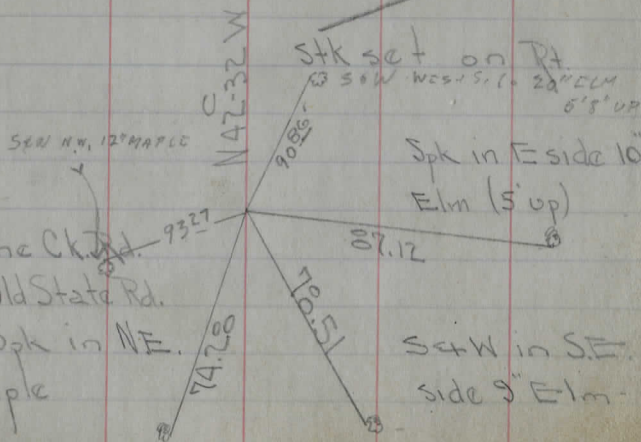 Stk set on Rt.
S & W WEST S. 20" ELM
5'8" UP
C
N 42-32 W
90.86
S&W N.W. 12" MAPLE
Spk in E side 10
Elm (5' up)
93.27
87.12
Ck. Rd.
ld State Rd.
pk in NE.
ple
74.28
78.51
S&W in S.E.
side 9" Elm